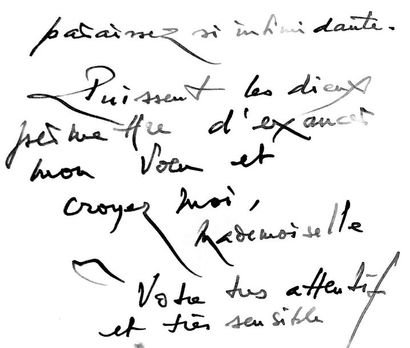 paraissez si intimidante.
Puissent les dieux
permettre d'exaucer
mon Voeu et
croyez moi,
Mademoiselle
Votre très attentif
et très sensible